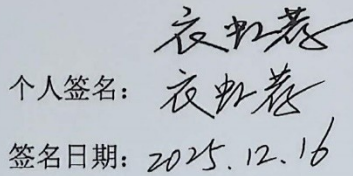 衣虹蕊
个人签名：衣虹蕊
签名日期：2025.12.16